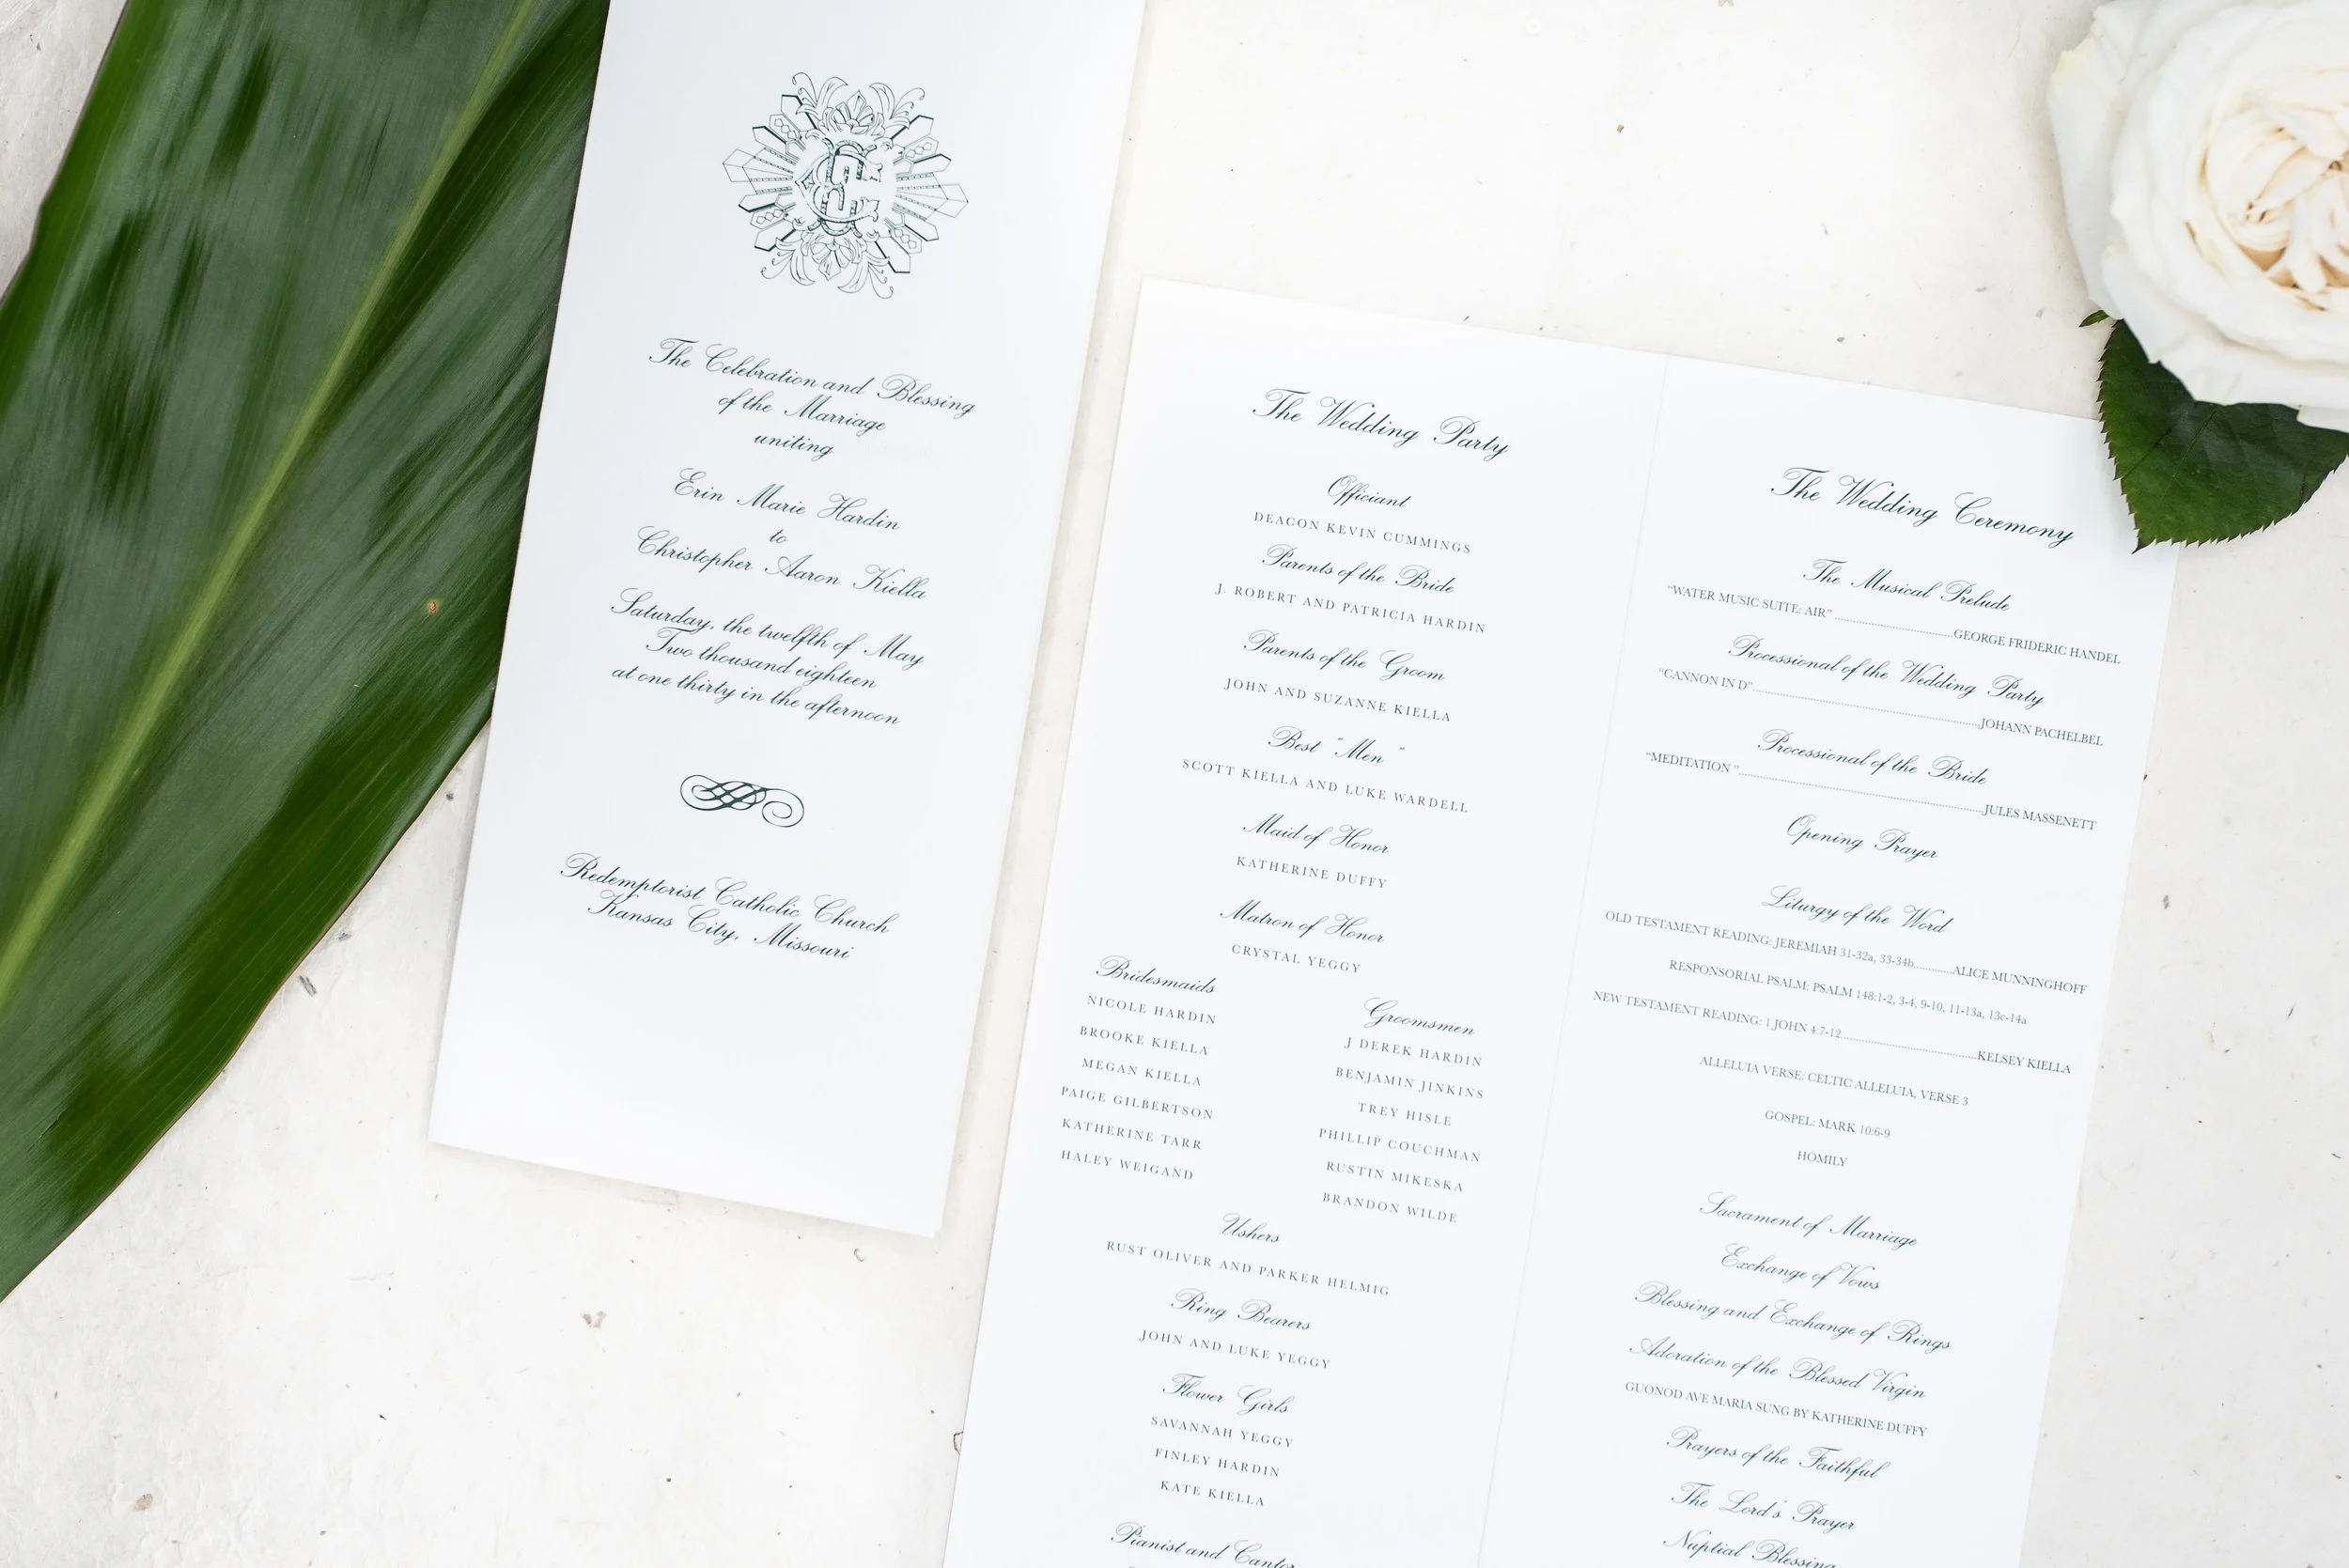 The Celebration and Blessing
of the Marriage
uniting
Erin Marie Hardin
to
Christopher Aaron Kiella
Saturday, the twelfth of May
Two thousand eighteen
at one thirty in the afternoon
Redemptorist Catholic Church
Kansas City, Missouri
The Wedding Party
Officiant
DEACON KEVIN CUMMINGS
Parents of the Bride
J. ROBERT AND PATRICIA HARDIN
Parents of the Groom
JOHN AND SUZANNE KIELLA
Best "Men"
SCOTT KIELLA AND LUKE WARDELL
Maid of Honor
KATHERINE DUFFY
Matron of Honor
CRYSTAL YEGGY
Bridesmaids
NICOLE HARDIN
BROOKE KIELLA
MEGAN KIELLA
PAIGE GILBERTSON
KATHERINE TARR
HALEY WEIGAND
Groomsmen
J DEREK HARDIN
BENJAMIN JINKINS
TREY HISLE
PHILLIP COUCHMAN
RUSTIN MIKESKA
BRANDON WILDE
Ushers
RUST OLIVER AND PARKER HELMIG
Ring Bearers
JOHN AND LUKE YEGGY
Flower Girls
SAVANNAH YEGGY
FINLEY HARDIN
KATE KIELLA
Pianist and Cantor
The Wedding Ceremony
The Musical Prelude
"WATER MUSIC SUITE: AIR"..........GEORGE FRIDERIC HANDEL
Processional of the Wedding Party
"CANNON IN D"..........JOHANN PACHELBEL
Processional of the Bride
"MEDITATION "..........JULES MASSENETT
Opening Prayer
Liturgy of the Word
OLD TESTAMENT READING: JEREMIAH 31-32a, 33-34b..........ALICE MUNNINGHOFF
RESPONSORIAL PSALM: PSALM 148:1-2, 3-4, 9-10, 11-13a, 13c-14a
NEW TESTAMENT READING: 1 JOHN 4:7-12..........KELSEY KIELLA
ALLELUIA VERSE: CELTIC ALLELUIA, VERSE 3
GOSPEL: MARK 10:6-9
HOMILY
Sacrament of Marriage
Exchange of Vows
Blessing and Exchange of Rings
Adoration of the Blessed Virgin
GUONOD AVE MARIA SUNG BY KATHERINE DUFFY
Prayers of the Faithful
The Lord's Prayer
Nuptial Blessing